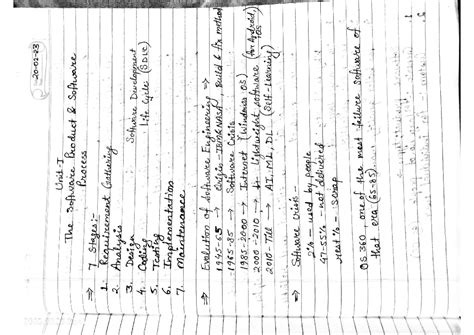 20-01-23
Unit-I
The Software Product & Software
Process
⇒ 7 Stages:-
1. Requirement Gathering
2. Analysis
3. Design
4. Coding
5. Testing
6. Implementation
7. Maintenance
Software Development
Life Cycle (SDLC)
⇒ Evolution of Software Engineering ⇒
1945-65 → Origin - Build & fix method
1965-85 → Software Crisis
1985-2000 → Internet (Windows OS)
2000-2010 → Lightweight software (for Android, IOS)
2010-Till → AI, ML, DL (Self-Learning)
⇒ Software Crisis
2% - used by people
47-55% - not delivered
% - Scrap
OS 360 one of the most failure software of
that era (65-85)